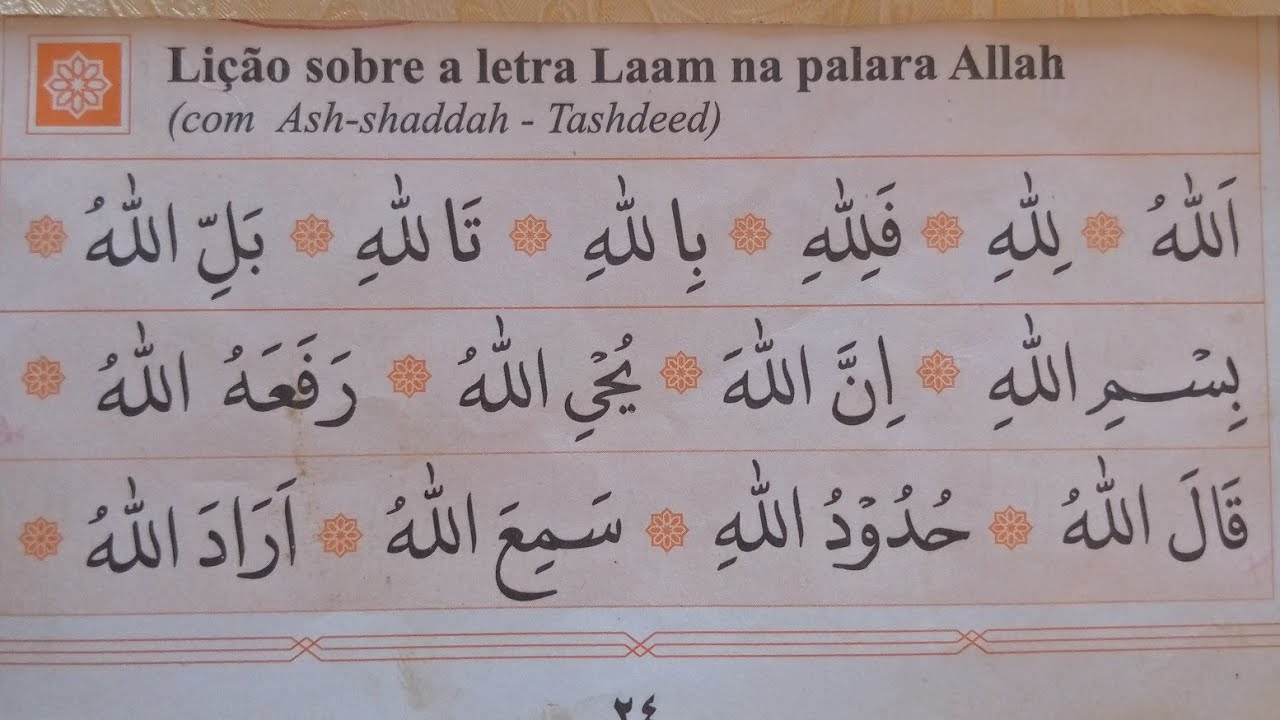 Lição sobre a letra Laam na palara Allah
(com Ash-shaddah - Tashdeed)
اَللّٰهُ لِلّٰهِ فَلِلّٰهِ بِاللّٰهِ تَاللّٰهِ بَلِّ اللّٰهُ
بِسْمِ اللّٰهِ اِنَّ اللّٰهَ يُحْيِ اللّٰهُ رَفَعَهُ اللّٰهُ
قَالَ اللّٰهُ حُدُوْدُ اللّٰهِ سَمِعَ اللّٰهُ اَرَادَ اللّٰهُ
٢٤